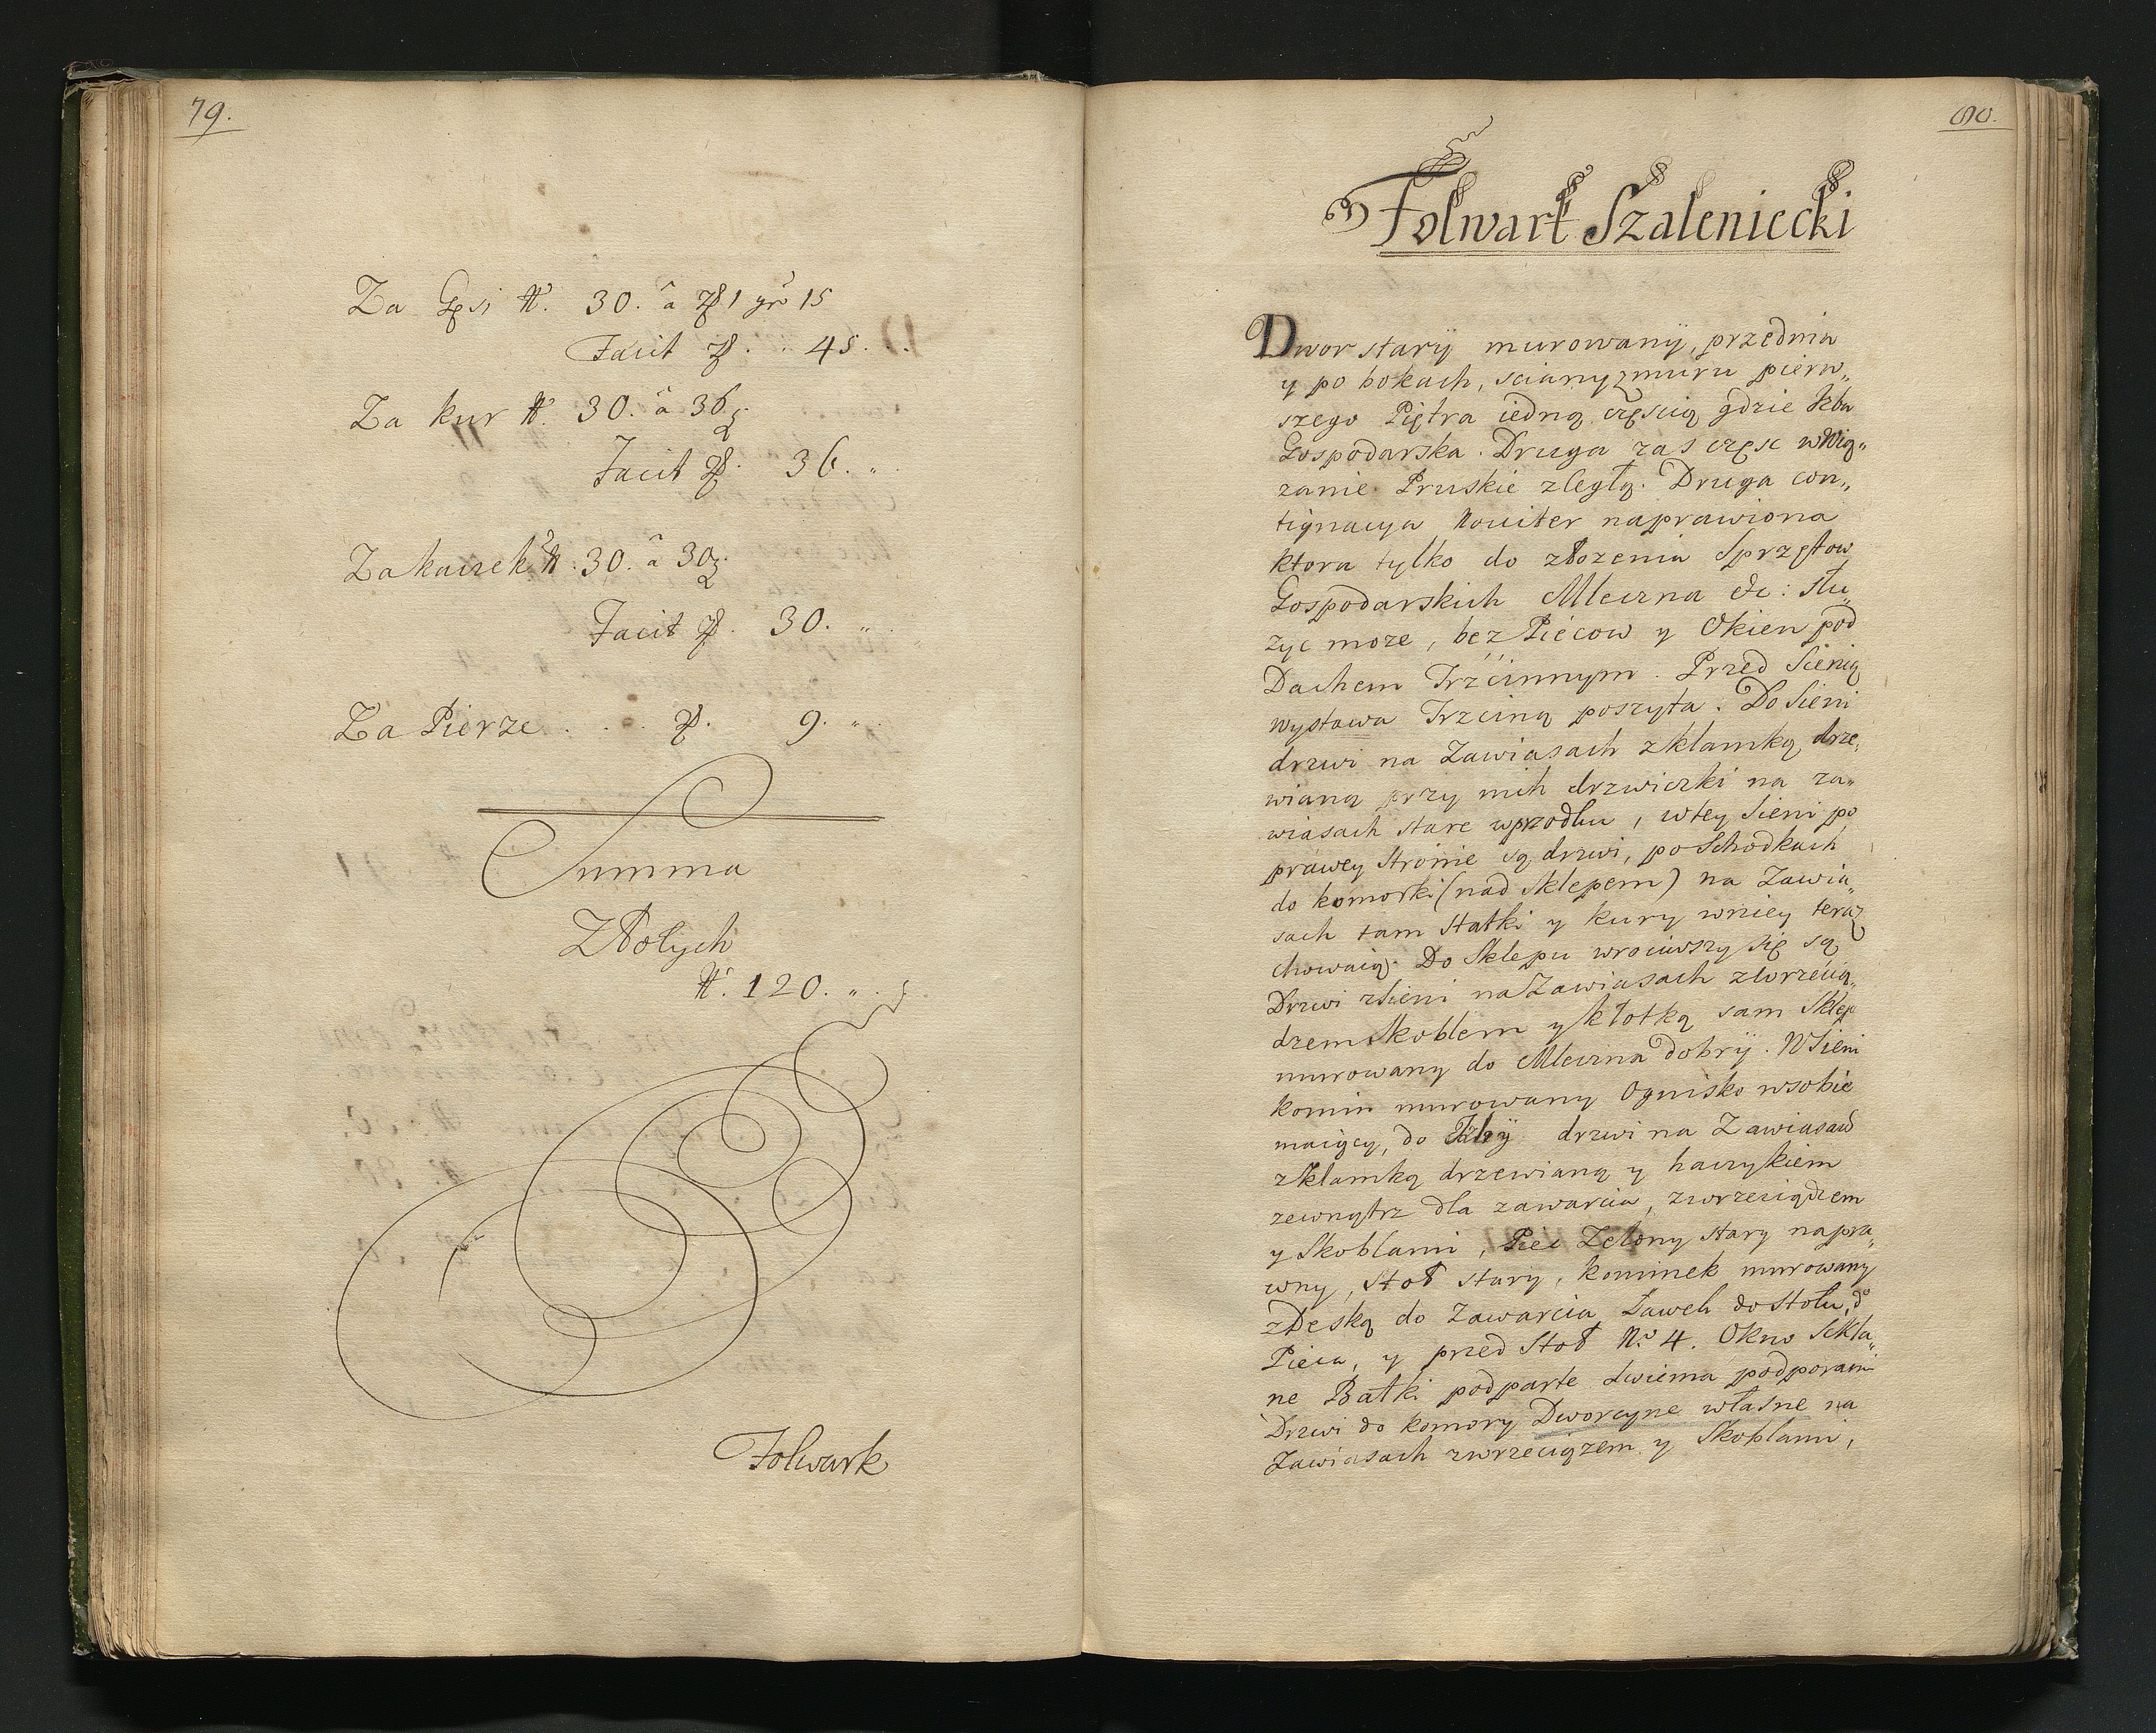 79.
Za Gęsi N. 30. â zł 1 gr 15
Facit zł. .. 45. ..
Za kur N. 30. â 36
Facit zł. 36. „.
Za kaczek N. 30. â 30
Facit zł. 30. „.
Za Pierze . . . . zł. 9. „.
Summa
Złotych
N. 120. „.
Folwark
80.
Folwark Szaleniecki
Dwor staryÿ murowanÿ, przednia
y po bokach, sciany z muru pierw„
szego Piętra iedną częscią gdzie Izba
Gospodarska. Druga zas częsc w Wią„
zanie Pruskie zległą. Druga con„
tignacya Noviter naprawiona
ktora tylko do złozenia Sprzętow
Gospodarskich Mleczna &c: słu„
zyc moze, bez Piecow y Okien pod
Dachem Trzcinnym. Przed Sienią
wystawa Trzciną poszyta. Do Sieni
drzwi na Zawiasach z klamką drze„
wianą przy nich drzwiczki na za„
wiasach stare w przodku, w tey Sieni po
prawey stronie są drzwi, po Schodkach
do komorki (nad Sklepem) na Zawia„
sach tam Statki y kury w niey teraz
chowaią. Do Sklepu wrociwszy się są
Drzwi z Sieni na Zawiasach z wrzecią„
dzem Skoblem y kłotką sam Sklep
murowany do Mleczna dobrÿ. W Sieni
komin murowany Ognisko w sobie
maiący, do Izbÿ drzwi na Zawiasach
z klamką drzewianą y haczykiem
zewnątrz dla zawarcia, z wrzeciądzem
y Skoblami, Piec Zelony stary napra„
wny, Stoł stary, kominek murowany
z Deską do Zawarcia Ławek do Stołu, do
Pieca, y przed Stoł No. 4. Okno Szkla„
ne Bałki podparte dwiema podporami
Drzwi do komory Dworcyne własne na
Zawiasach z wrzeciązem y Skoblami,